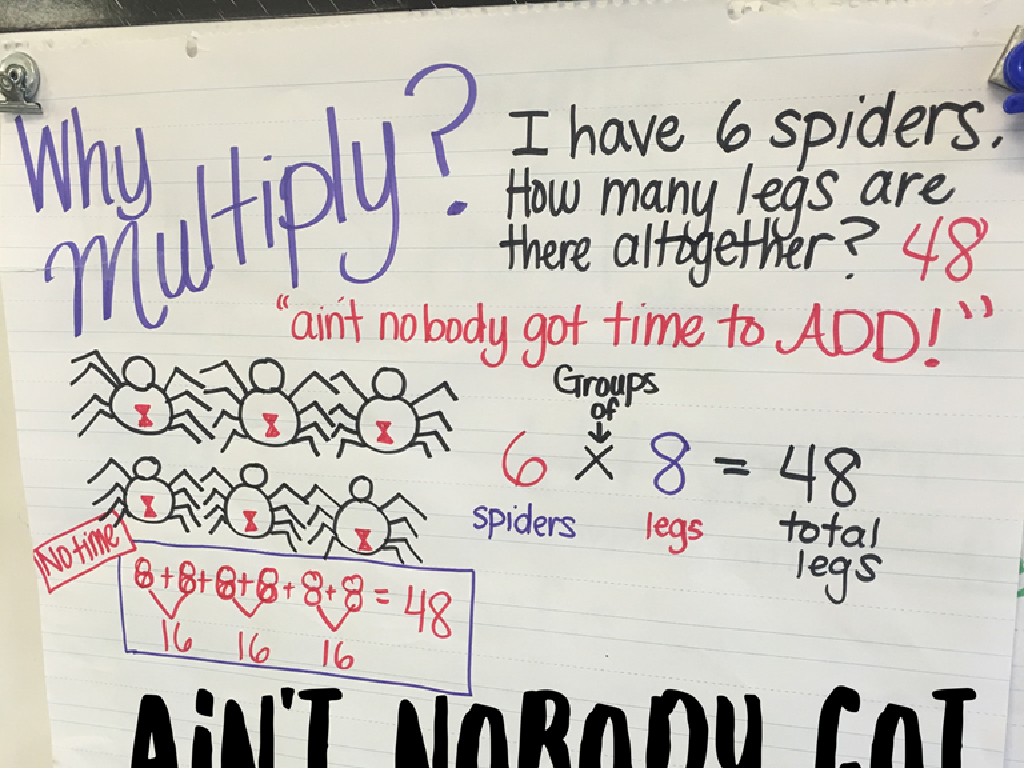 Why
Multiply?
I have 6 spiders.
How many legs are
there altogether? 48
"ain't nobody got time to ADD!"
Groups
of
6 × 8 = 48
spiders legs total
legs
No time
8+8+8+8+8+8=48
16 16 16
AIN'T NOBODY GOT